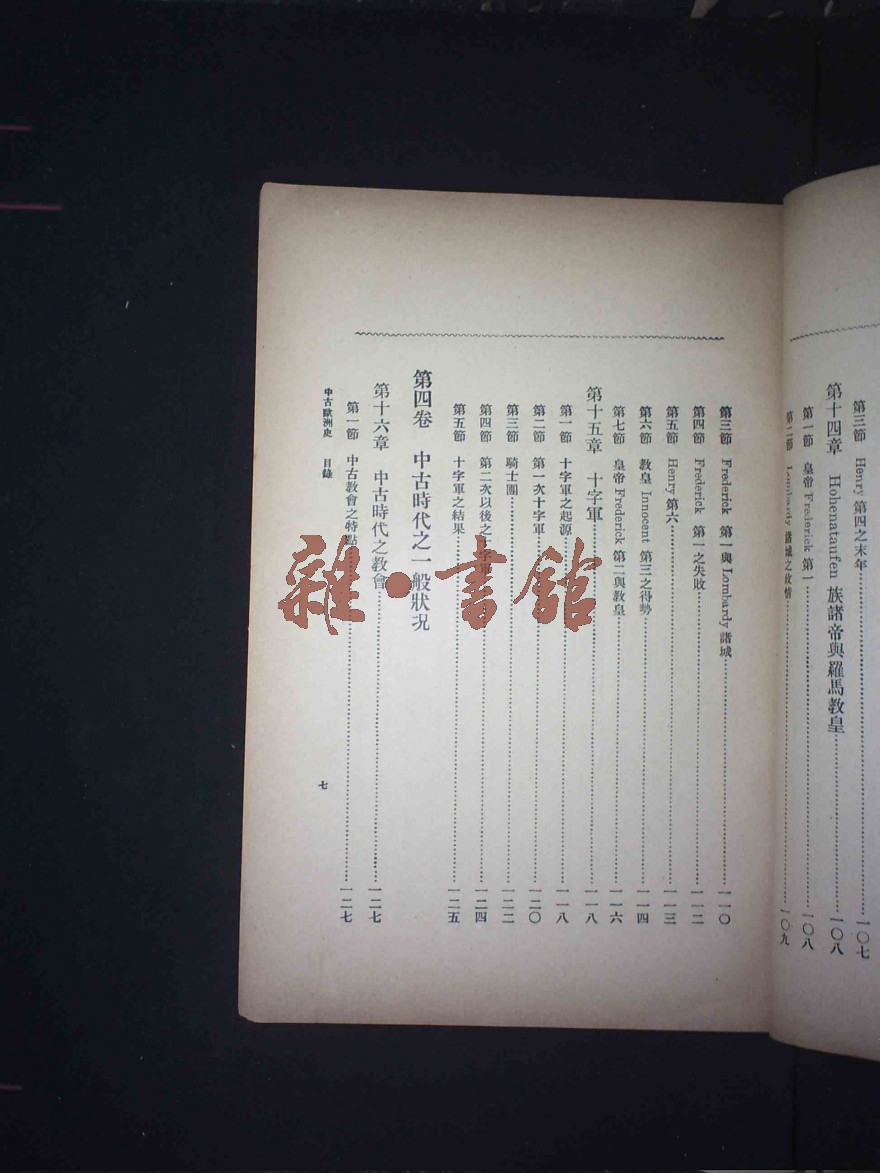 第三節 Henry 第四之末年 一〇七
第十四章 Hohenataufen 族諸帝與羅馬教皇 一〇八
第一節 皇帝 Frederick 第一 一〇八
第二節 Lombardy 諸城之政情 一〇九
第三節 Frederick 第一與 Lombardy 諸城 一一〇
第四節 Frederick 第一之失敗 一一二
第五節 Henry 第六 一一三
第六節 教皇 Innocent 第三之得勢 一一四
第七節 皇帝 Frederick 第二與教皇 一一六
第十五章 十字軍 一一八
第一節 十字軍之起源 一一八
第二節 第一次十字軍 一二〇
第三節 騎士團 一二二
第四節 第二次以後之十字軍 一二四
第五節 十字軍之結果 一二五
第四卷 中古時代之一般狀況
第十六章 中古時代之教會 一二七
第一節 中古教會之特點 一二七
中古歐洲史 目錄 七
雜·書館